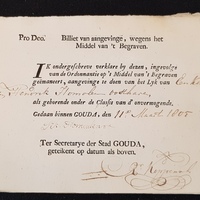 Pro Deo. Billiet van aangevinge, wegens het
Middel van 't Begraven.
IK ondergeschreve verklare by dezen, ingevolge
van de Ordonnantie op 't Middel van 't Begraven
geëmaneert, aangevinge te doen van het Lyk van
Hendrik
als gehorende onder de Classis van d' onvermogende.
Gedaan binnen GOUDA, den 11 Maart 1805
Ter Secretarye der Stad GOUDA,
geteikent op datum als boven.